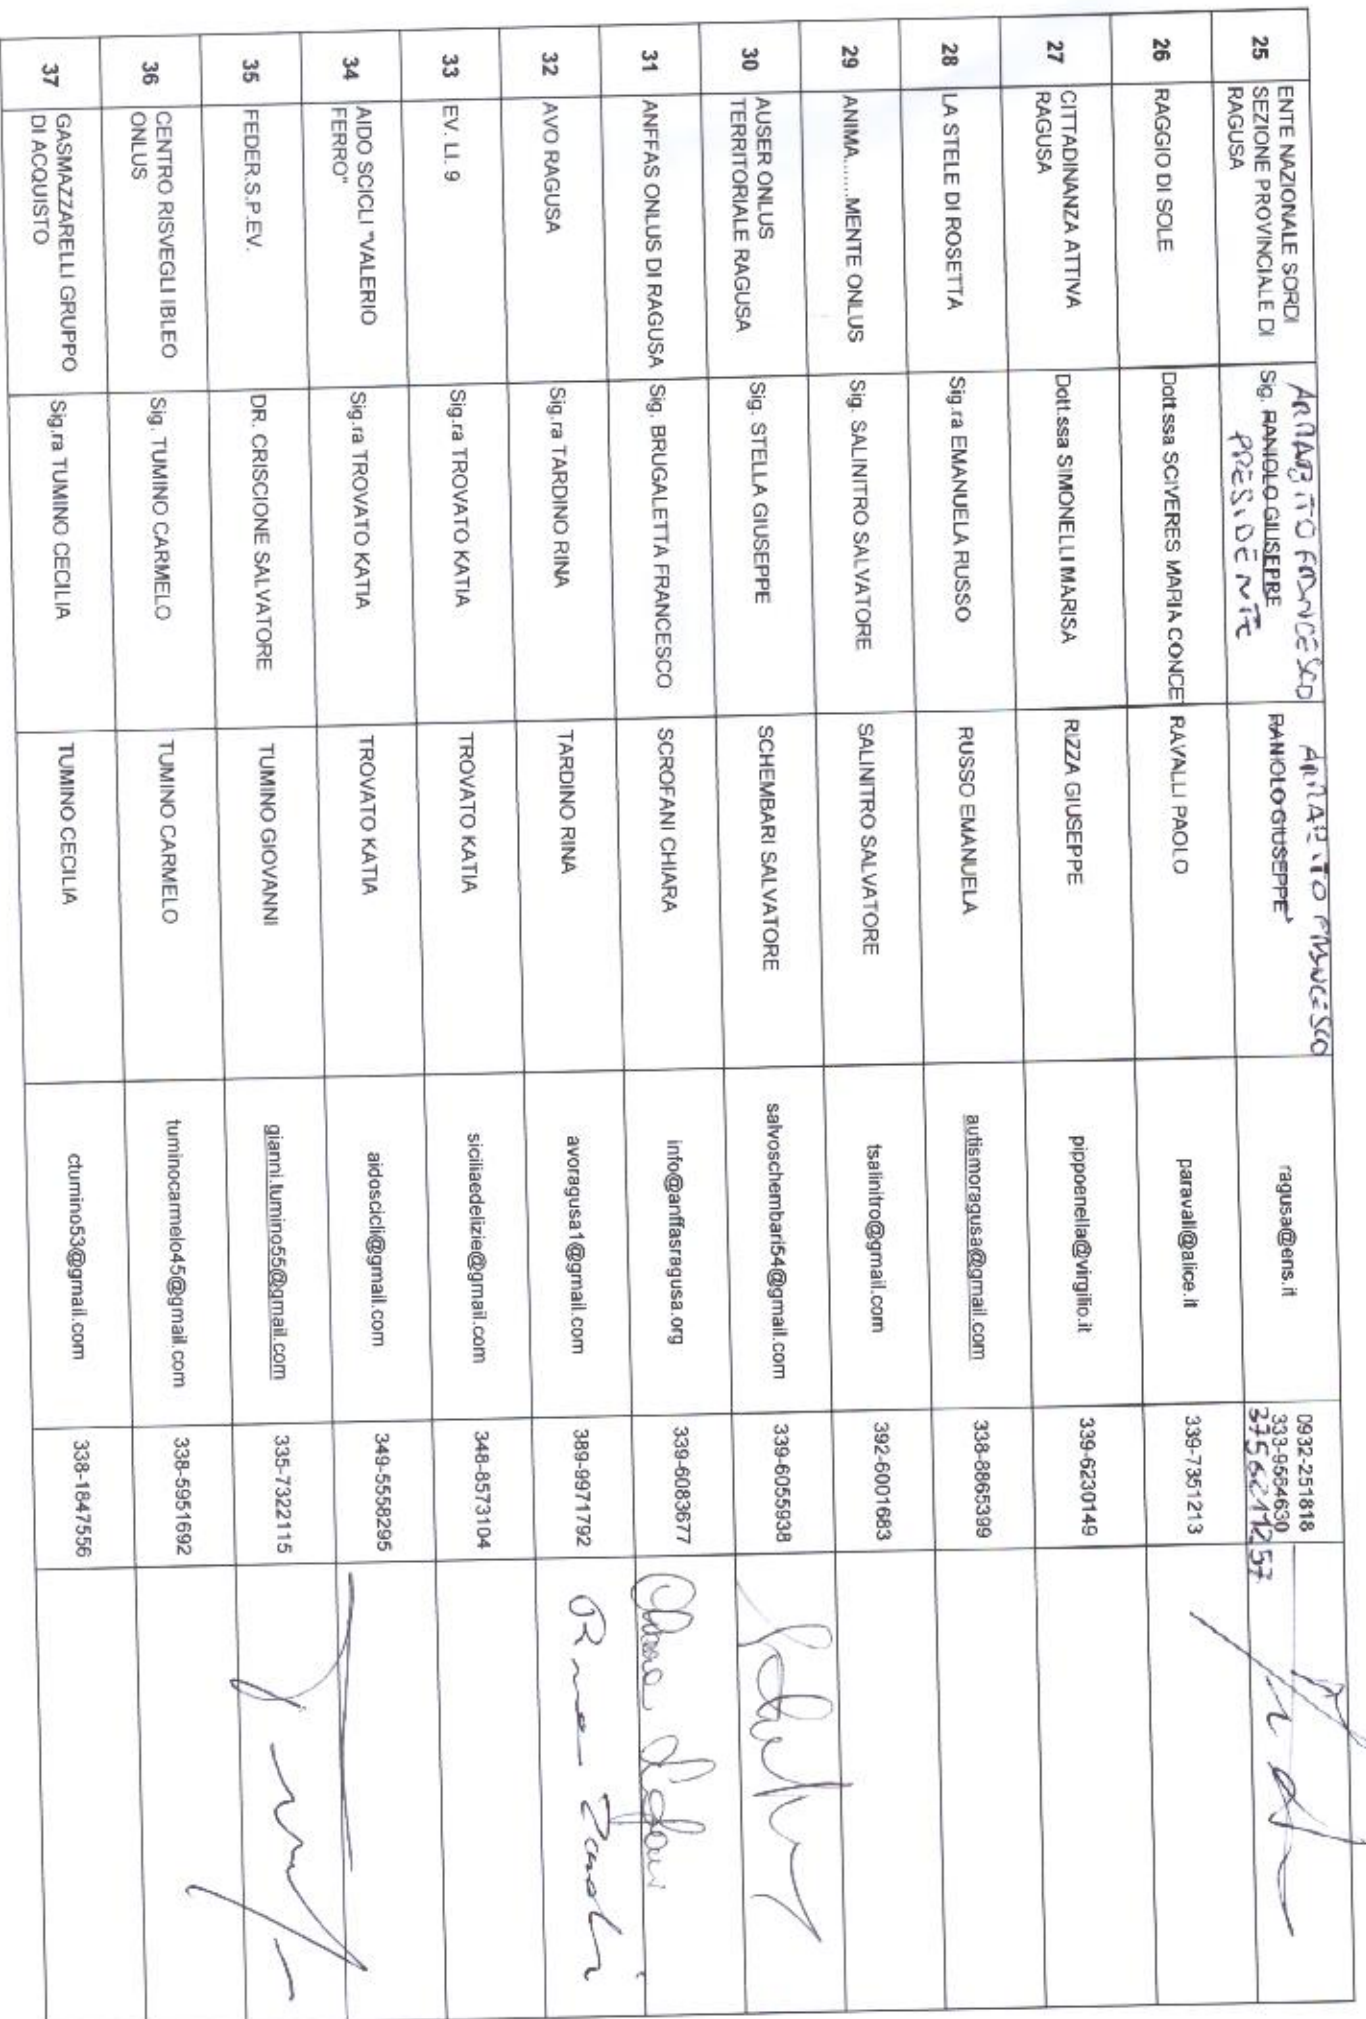 25
ENTE NAZIONALE SORDI
SEZIONE PROVINCIALE DI
RAGUSA
ARRABITO FRANCESCO
Sig. RANIOLO GIUSEPPE
PRESIDENTE
ARRABITO FRANCESCO
RANIOLO GIUSEPPE
ragusa@ens.it
0932-251818
333-9554630
26
RAGGIO DI SOLE
Dott.ssa SCIVERES MARIA CONCET
RAVALLI PAOLO
paravall@alice.it
339-7351213
27
CITTADINANZA ATTIVA
RAGUSA
Dott.ssa SIMONELLI MARISA
RIZZA GIUSEPPE
pippoenella@virgilio.it
339-6230149
28
LA STELE DI ROSETTA
Sig.ra EMANUELA RUSSO
RUSSO EMANUELA
autismoragusa@gmail.com
338-8865399
29
ANIMA.......MENTE ONLUS
Sig. SALINITRO SALVATORE
SALINITRO SALVATORE
tsalinitro@gmail.com
392-6001683
30
AUSER ONLUS
TERRITORIALE RAGUSA
Sig. STELLA GIUSEPPE
SCHEMBARI SALVATORE
salvoschembari54@gmail.com
339-6055938
31
ANFFAS ONLUS DI RAGUSA
Sig. BRUGALETTA FRANCESCO
SCROFANI CHIARA
info@anffasragusa.org
339-6083677
32
AVO RAGUSA
Sig.ra TARDINO RINA
TARDINO RINA
avoragusa1@gmail.com
389-9971792
33
EV. LI. 9
Sig.ra TROVATO KATIA
TROVATO KATIA
siciliaedelizie@gmail.com
348-8573104
34
AIDO SCICLI "VALERIO
FERRO"
Sig.ra TROVATO KATIA
TROVATO KATIA
aidoscicli@gmail.com
349-5558295
35
FEDER.S.P.EV.
DR. CRISCIONE SALVATORE
TUMINO GIOVANNI
gianni.tumino55@gmail.com
335-7322115
36
CENTRO RISVEGLI IBLEO
ONLUS
Sig. TUMINO CARMELO
TUMINO CARMELO
tuminocarmelo45@gmail.com
338-5951692
37
GASMAZZARELLI GRUPPO
DI ACQUISTO
Sig.ra TUMINO CECILIA
TUMINO CECILIA
ctumino53@gmail.com
338-1847556